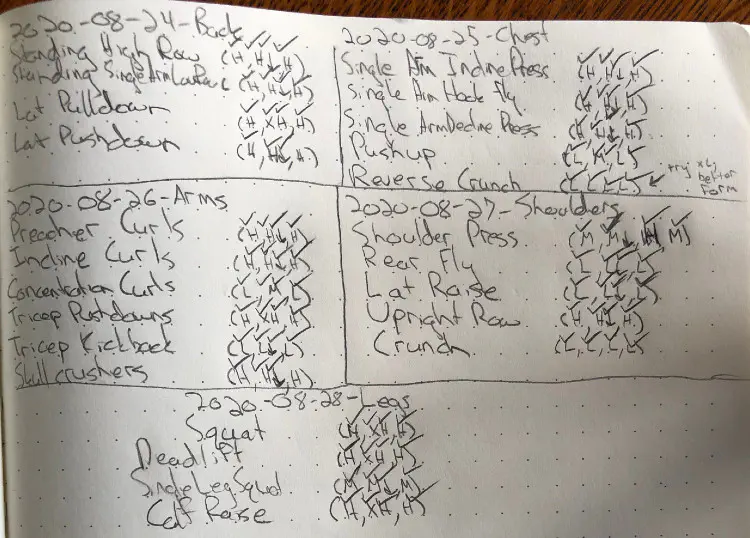 2020-08-24-Back
Standing High Row (H,H↓H)
Standing Single Arm Low Row (H,H↓H)
Lat Pulldown (H,XH,H)
Lat Pushdown (H,H↓H)
2020-08-25-Chest
Single Arm Incline Press (H,H↓H)
Single Arm Fly (H,H↓H)
Single Arm Decline Press (H,H↓H)
Pushup (L,M,L)
Reverse Crunch (L,L,L) ← try XL,
better
form
2020-08-26-Arms
Preacher Curls (H,H↓H)
Incline Curls (H,H↓H)
Concentration Curls (L,M,L)
Tricep Pushdowns (H,XH,H)
Tricep Kickback (L,L,L)
Skullcrushers (H,H↓H)
2020-08-27-Shoulders
Shoulder Press (M,M↓M)
Rear Fly (L,L,L)
Lat Raise (L,L,L)
Upright Row (H,H↓H)
Crunch (L,L,L,L)
2020-08-28-Legs
Squat (H,XH,H)
Deadlift (H,XH,H)
Single Leg Squat (M,M↓M)
Calf Raise (H,XH,H)